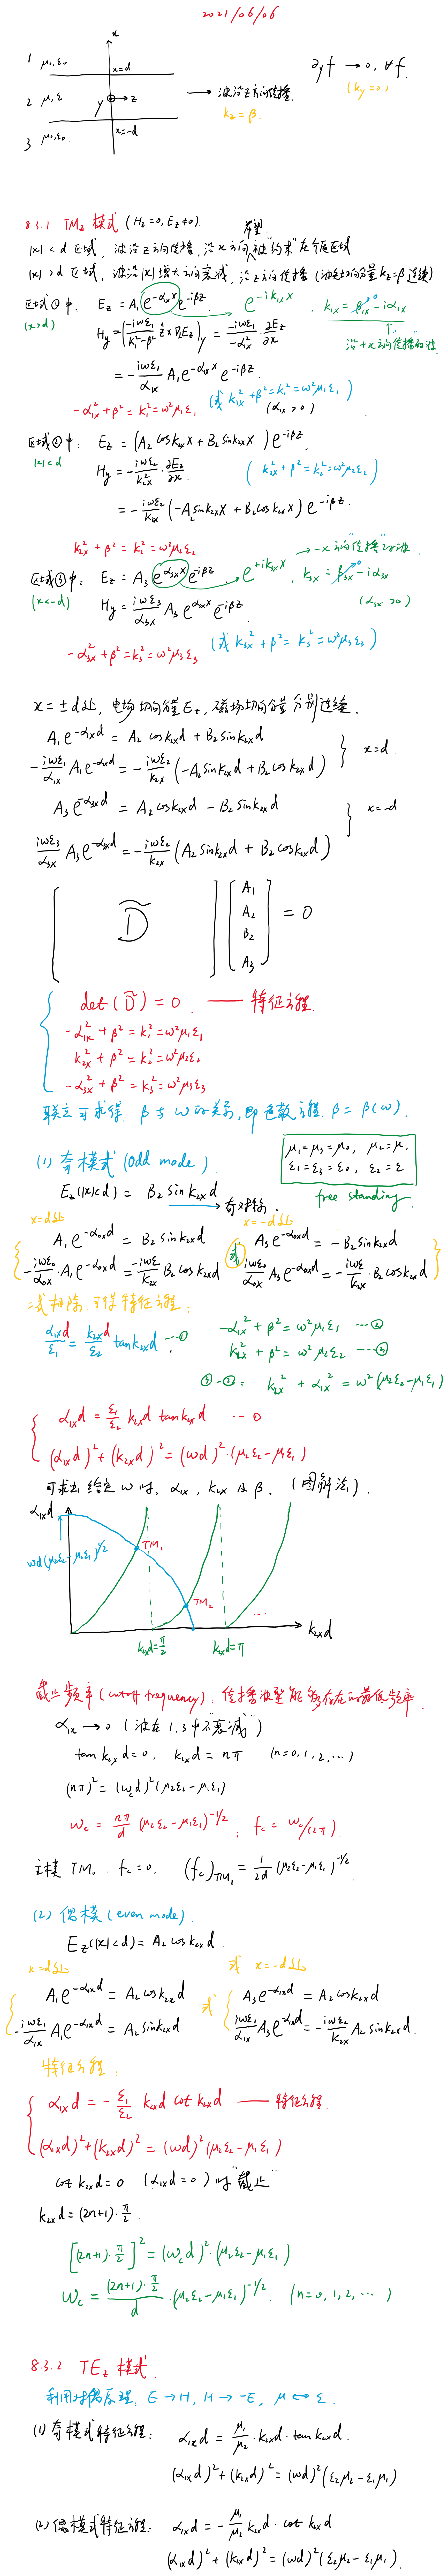 2021/06/06
x
1 μ₀,ε₀ x=d
2 μ,ε y z → 波沿z方向传播. ∂yf → 0, ∀f.
kz = β. (ky = 0)
3 μ₀,ε₀ x=-d
8.3.1 TMz 模式 (Hz=0, Ez≠0)
希望
|x|<d 区域, 波沿z方向传播, 沿x方向被"约束"在介质区域
|x|>d 区域, 波沿|x|增大方向衰减, 沿z方向传播 (波矢切向分量 kz=β 连续)
区域①中: Ez = A₁ e^{-α₁ₓx} e^{-iβz}. → e^{-ik₁ₓx} k₁ₓ = β₁ₓ⁰ - iα₁ₓ
(x>d) 沿+x方向传播的波
Hy = (-iωε₁/(k₁²-β²) ẑ×∇Ez)y = -iωε₁/-α₁ₓ² ∂Ez/∂x
= -iωε₁/α₁ₓ A₁ e^{-α₁ₓx} e^{-iβz}.
-α₁ₓ² + β² = k₁² = ω²μ₁ε₁ (或 k₁ₓ² + β² = k₁² = ω²μ₁ε₁)
(α₁ₓ > 0)
区域②中: Ez = (A₂ cos k₂ₓx + B₂ sin k₂ₓx) e^{-iβz}
|x|<d
Hy = -iωε₂/k₂ₓ² · ∂Ez/∂x. (k₂ₓ² + β² = k₂² = ω²μ₂ε₂)
= -iωε₂/k₂ₓ (-A₂ sin k₂ₓx + B₂ cos k₂ₓx) e^{-iβz}
k₂ₓ² + β² = k₂² = ω²μ₂ε₂. -x方向"传播"的波
区域③中: Ez = A₃ e^{α₃ₓx} e^{-iβz} → e^{+ik₃ₓx}, k₃ₓ = β₃ₓ⁰ - iα₃ₓ
(x<-d) Hy = iωε₃/α₃ₓ A₃ e^{α₃ₓx} e^{-iβz}. (α₃ₓ > 0)
-α₃ₓ² + β² = k₃² = ω²μ₃ε₃ (或 k₃ₓ² + β² = k₃² = ω²μ₃ε₃)
x = ±d处, 电场切向分量Ez, 磁场切向分量分别连续.
A₁e^{-α₁ₓd} = A₂ cos k₂ₓd + B₂ sin k₂ₓd
-iωε₁/α₁ₓ A₁e^{-α₁ₓd} = -iωε₂/k₂ₓ (-A₂ sin k₂ₓd + B₂ cos k₂ₓd) } x=d.
A₃e^{-α₃ₓd} = A₂ cos k₂ₓd - B₂ sin k₂ₓd
iωε₃/α₃ₓ A₃e^{-α₃ₓd} = -iωε₂/k₂ₓ (A₂ sin k₂ₓd + B₂ cos k₂ₓd) } x=-d
[ D̃ ] [A₁ A₂ B₂ A₃] = 0
det(D̃) = 0. —— 特征方程.
-α₁ₓ² + β² = k₁² = ω²μ₁ε₁
k₂ₓ² + β² = k₂² = ω²μ₂ε₂
-α₃ₓ² + β² = k₃² = ω²μ₃ε₃
联立可求得 β与ω的关系, 即色散方程. β = β(ω).
(1) 奇模式 (Odd mode) μ₁=μ₃=μ₀, μ₂=μ.
ε₁=ε₃=ε₀, ε₂=ε
Ez(|x|<d) = B₂ sin k₂ₓd → 奇对称. free standing.
x=d处 x=-d处
A₁e^{-α₀ₓd} = B₂ sin k₂ₓd 或 A₃e^{-α₀ₓd} = -B₂ sin k₂ₓd
-iωε₀/α₀ₓ · A₁e^{-α₀ₓd} = -iωε/k₂ₓ B₂ cos k₂ₓd iωε₀/α₀ₓ A₃e^{-α₀ₓd} = -iωε/k₂ₓ · B₂ cos k₂ₓd
二式相除. 可得特征方程:
α₁ₓd/ε₁ = k₂ₓd/ε₂ tan k₂ₓd ···① -α₁ₓ² + β² = ω²μ₁ε₁ ···②
k₂ₓ² + β² = ω²μ₂ε₂ ···③
③-②: k₂ₓ² + α₁ₓ² = ω²(μ₂ε₂-μ₁ε₁)
α₁ₓd = ε₁/ε₂ k₂ₓd tan k₂ₓd ···①
(α₁ₓd)² + (k₂ₓd)² = (ωd)²·(μ₂ε₂-μ₁ε₁)
可求出给定ω时, α₁ₓ, k₂ₓ 及 β. (图解法).
α₁ₓd
ωd(μ₂ε₂-μ₁ε₁)^{1/2}
TM₁
TM₂
...
k₂ₓd
k₂ₓd=π/2 k₂ₓd=π
截止频率 (cutoff frequency): 传播波型能够存在的最低频率.
α₁ₓ → 0 (波在1.3中不"衰减")
tan k₂ₓd = 0. k₂ₓd = nπ (n=0,1,2,···)
(nπ)² = (ωcd)²(μ₂ε₂-μ₁ε₁)
ωc = nπ/d (μ₂ε₂-μ₁ε₁)^{-1/2}; fc = ωc/(2π).
主模 TM₀. fc=0. (fc)TM₁ = 1/2d (μ₂ε₂-μ₁ε₁)^{-1/2}.
(2) 偶模 (even mode).
Ez(|x|<d) = A₂ cos k₂ₓd.
x=d处 或 x=-d处
A₁e^{-α₁ₓd} = A₂ cos k₂ₓd 或 A₃e^{-α₁ₓd} = A₂ cos k₂ₓd
-iωε₁/α₁ₓ A₁e^{-α₁ₓd} = A₂ sin k₂ₓd iωε₁/α₁ₓ A₃e^{-α₁ₓd} = -iωε₂/k₂ₓ A₂ sin k₂ₓd.
特征方程:
α₁ₓd = -ε₁/ε₂ k₂ₓd cot k₂ₓd —— 特征方程.
(α₁ₓd)²+(k₂ₓd)² = (ωd)²(μ₂ε₂-μ₁ε₁)
cot k₂ₓd = 0 (α₁ₓd = 0) 时"截止"
k₂ₓd = (2n+1)·π/2.
[(2n+1)·π/2]² = (ωcd)²·(μ₂ε₂-μ₁ε₁)
ωc = (2n+1)·π/2 / d ·(μ₂ε₂-μ₁ε₁)^{-1/2}. (n=0,1,2,···)
8.3.2 TEz 模式.
利用对偶原理, E→H, H→-E, μ↔ε.
(1) 奇模式特征方程: α₁ₓd = μ₁/μ₂·k₂ₓd·tan k₂ₓd.
(α₁ₓd)² + (k₂ₓd)² = (ωd)²(ε₂μ₂-ε₁μ₁)
(2) 偶模式特征方程: α₁ₓd = -μ₁/μ₂ k₂ₓd · cot k₂ₓd
(α₁ₓd)² + (k₂ₓd)² = (ωd)²(ε₂μ₂-ε₁μ₁).